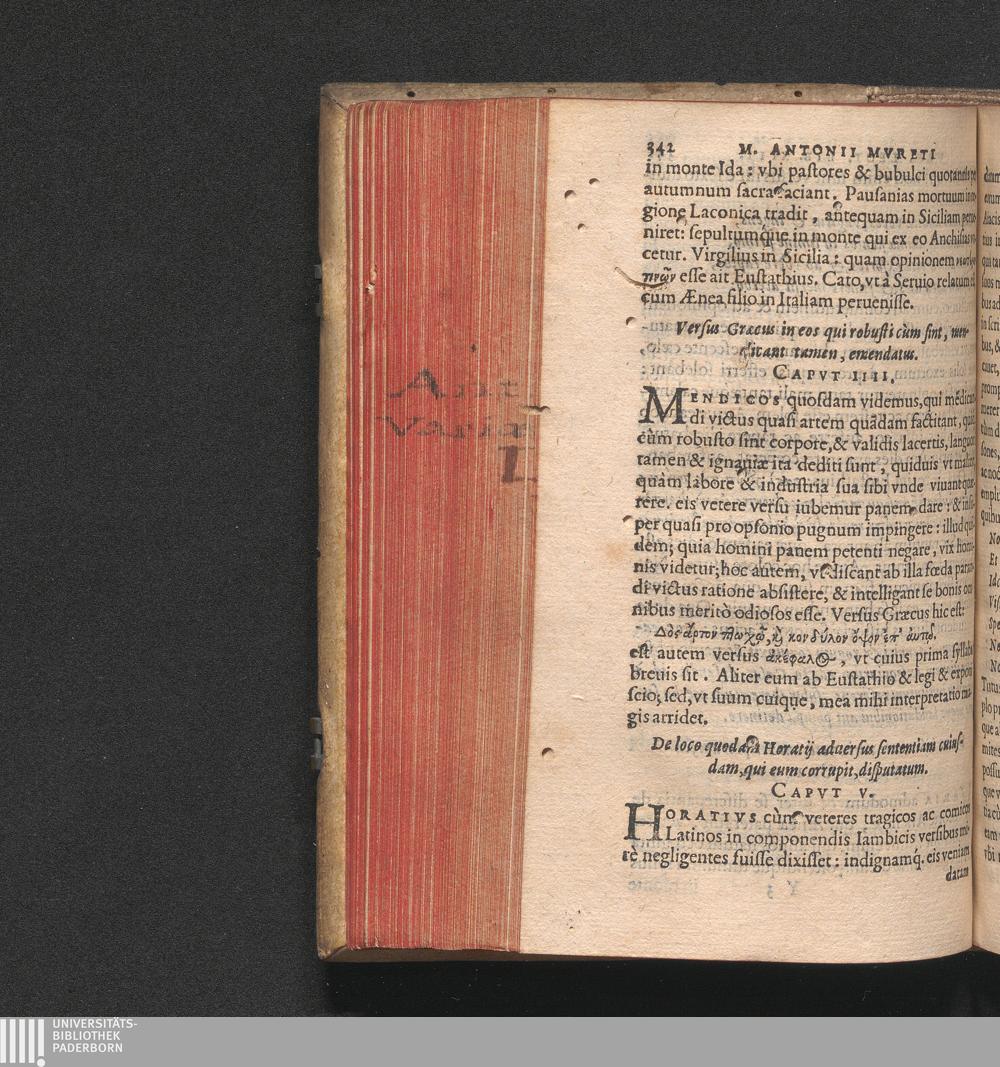 342 M. ANTONII MVRETI
in monte Ida: vbi pastores & bubulci quotannis per
autumnum sacra faciant. Pausanias mortuum in re-
gione Laconica tradit, antequam in Siciliam perue-
niret: sepultumq́ue in monte qui ex eo Anchisius vo-
cetur. Virgilius in Sicilia: quam opinionem
esse ait Eustathius. Cato, vt à Seruio relatum est
cum Ænea filio in Italiam peruenisse.
Versus Græcus in eos qui robusti cùm sint, men-
dicant tamen, emendatus.
CAPVT IIII.
MENDICOS quosdam videmus, qui mēdican-
di victus quasi artem quādam factitant, qui
cùm robusto sint corpore, & validis lacertis, languori
tamen & ignauiæ ita dediti sunt, quiduis vt malint,
quàm labore & industria sua sibi vnde viuant quæ-
rere. eis vetere versu iubemur panem dare: & insu-
per quasi pro opsonio pugnum impingere: illud qui-
dem; quia homini panem petenti negare, vix homi-
nis videtur; hoc autem, vt discant ab illa fœda paran-
di victus ratione absistere, & intelligant se bonis om-
nibus meritò odiosos esse. Versus Græcus hic est:
Δὸς ἄρτον πτωχῷ, καὶ κονδύλον ὄψον ἐπ' αὐτῷ.
est autem versus ἀκέφαλος, vt cuius prima syllaba
breuis sit. Aliter eum ab Eustathio & legi & exponi
scio; sed, vt suum cuique, mea mihi interpretatio ma-
gis arridet.
De loco quodam Horatij aduersus sententiam cuius-
dam, qui eum corrupit, disputatum.
CAPVT V.
HORATIVS cùm veteres tragicos ac comicos
Latinos in componendis Iambicis versibus mi-
rè negligentes fuisse dixisset: indignamq́. eis veniam
datam
Ant
Variæ
L
UNIVERSITÄTS-
BIBLIOTHEK
PADERBORN